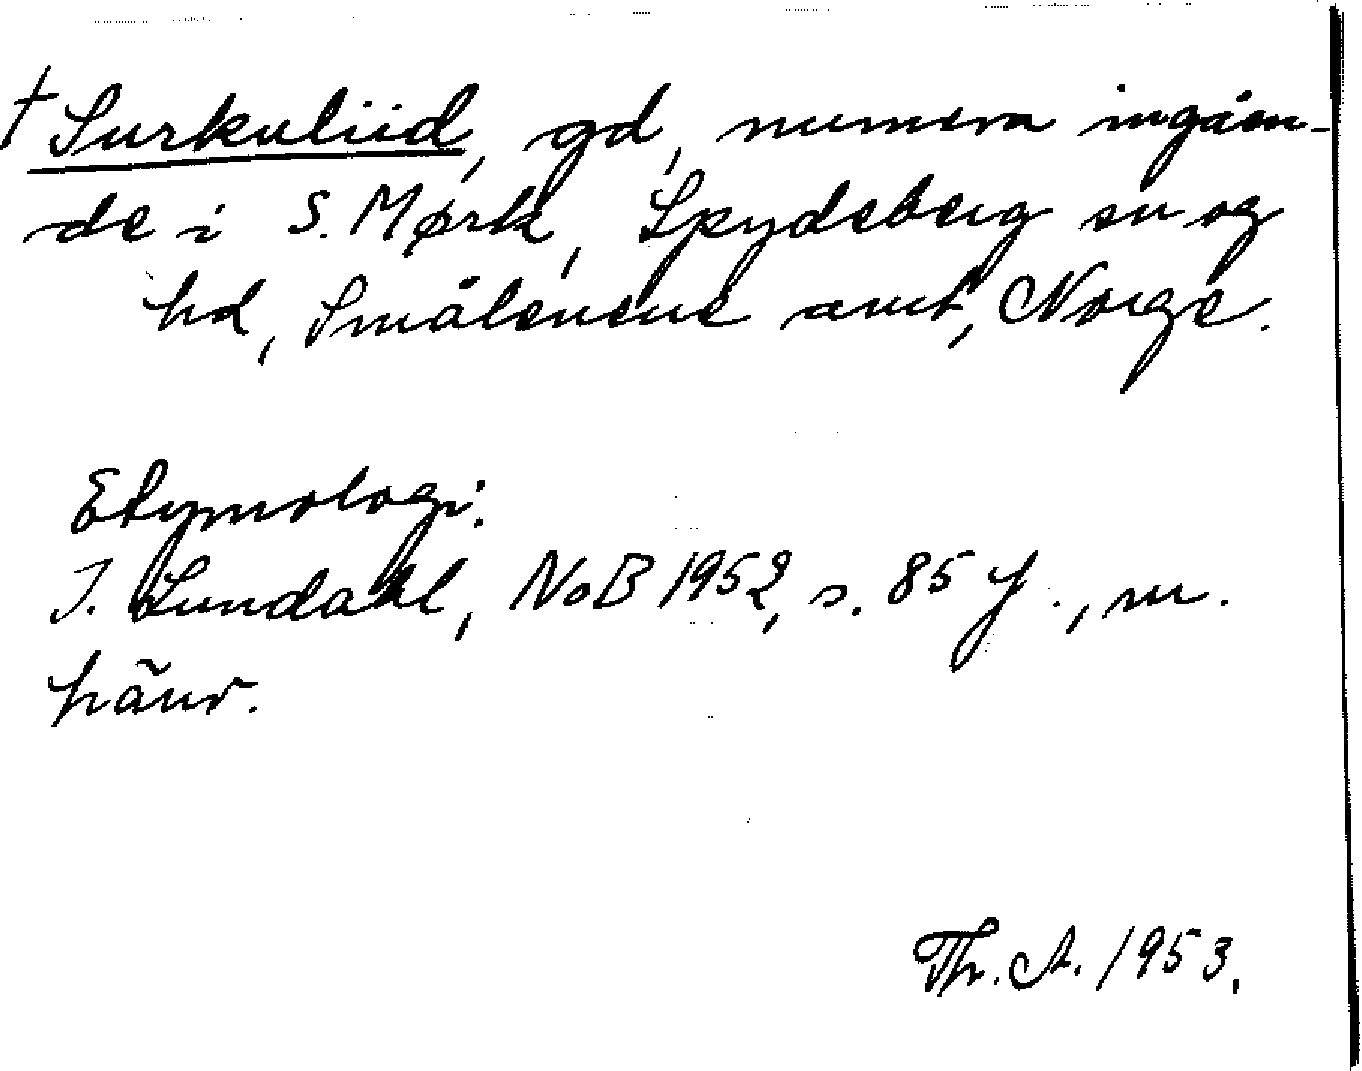 † Surkuliid, gd, numera ingåen-
de i S. Mørk, Spydeberg sn og
hd, Smålenene amt, Norge.
Etymologi:
I. Lundahl, NoB 1952, s. 85 f., m.
hänv.
Th. A. 1953.